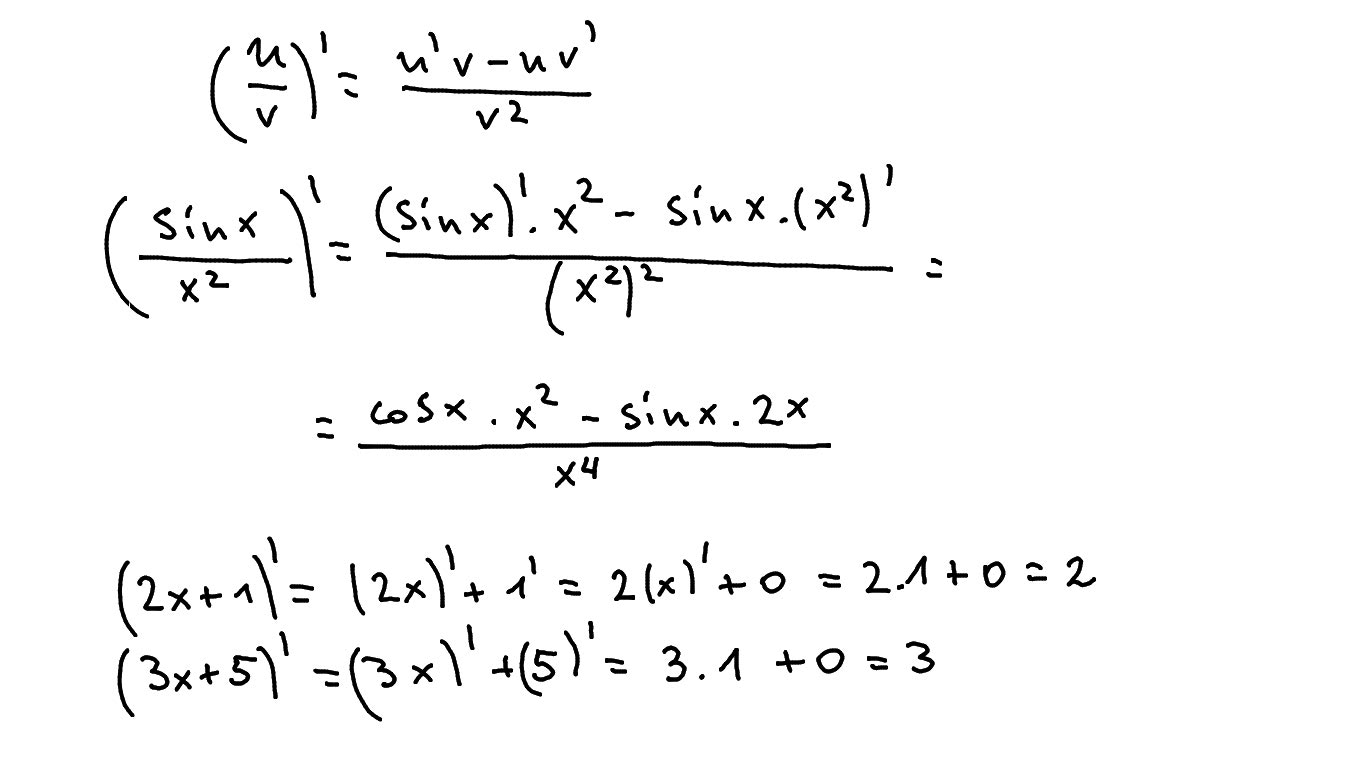 (u/v)' = (u'v - uv')/v²
(sin x/x²)' = ((sin x)' · x² - sin x · (x²)')/(x²)² =
= (cos x · x² - sin x · 2x)/x⁴
(2x + 1)' = (2x)' + 1' = 2(x)' + 0 = 2.1 + 0 = 2
(3x + 5)' = (3x)' + (5)' = 3.1 + 0 = 3